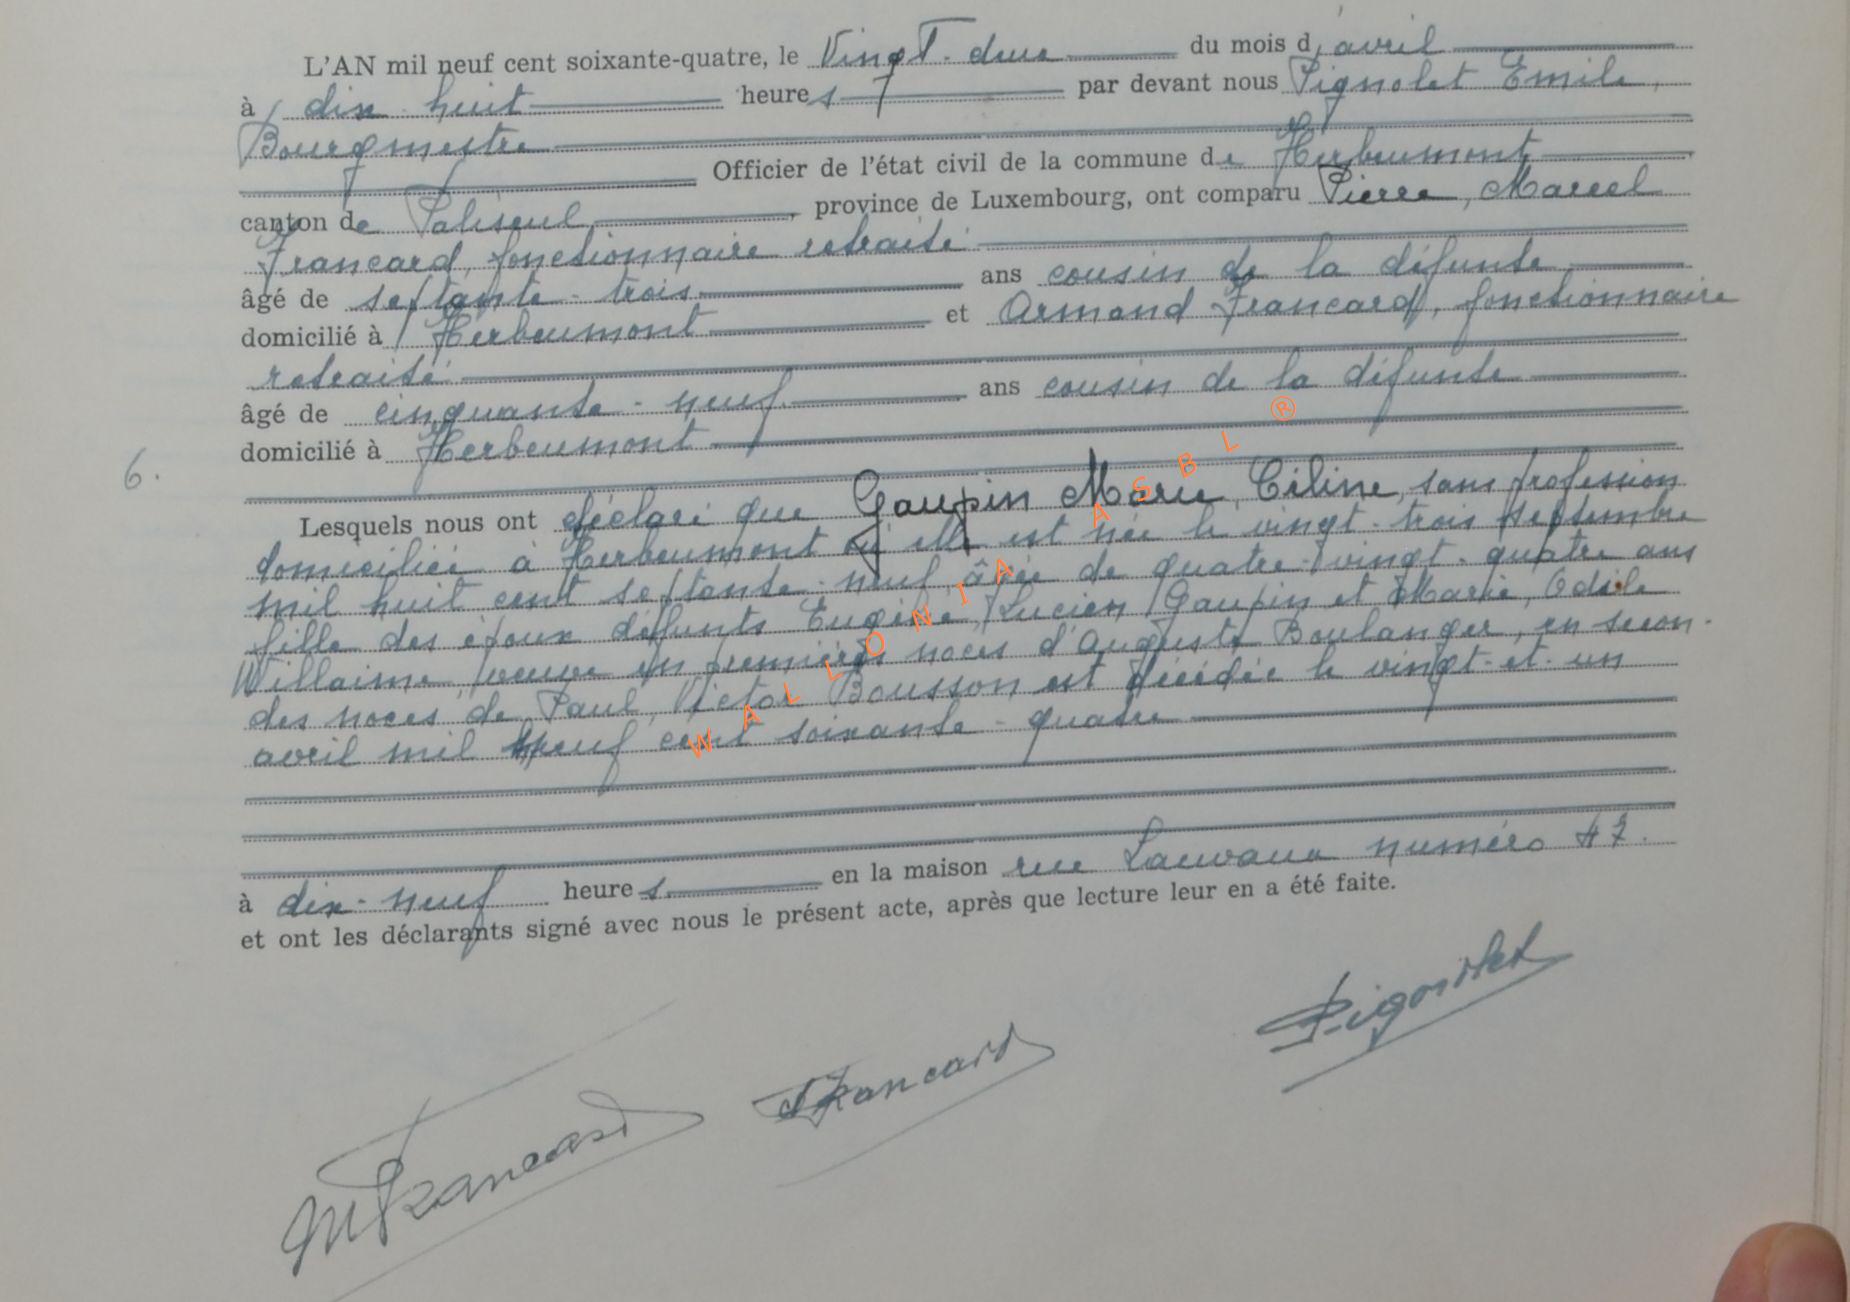 L'AN mil neuf cent soixante-quatre, le Vingt-deux du mois d'avril
à dix huit heures par devant nous Pignolet Emile,
Bourgmestre
Officier de l'état civil de la commune de Herbeumont
canton de Paliseul, province de Luxembourg, ont comparu Pierre, Marcel
Francard, fonctionnaire retraité
âgé de septante-trois ans cousin de la défunte
domicilié à Herbeumont et Armand Francard, fonctionnaire
retraité
âgé de cinquante-neuf ans cousin de la défunte
domicilié à Herbeumont
6.
Lesquels nous ont déclaré que Gaupin Marie, Céline, sans profession
domiciliée à Herbeumont où elle est née le vingt-trois septembre
mil huit cent septante-neuf, âgée de quatre-vingt-quatre ans
fille des époux défunts Eugène, Lucien Gaupin et Marie, Odile
Willaime, veuve en premières noces d'Auguste Boulanger, en secon-
des noces de Paul, Victor Bousson est décédée le vingt-et-un
avril mil neuf cent soixante-quatre
à dix-neuf heures en la maison rue Lauvaux numéro 47.
et ont les déclarants signé avec nous le présent acte, après que lecture leur en a été faite.
Pignolet
MFrancard AFrancard
WALLONIA ASBL ®